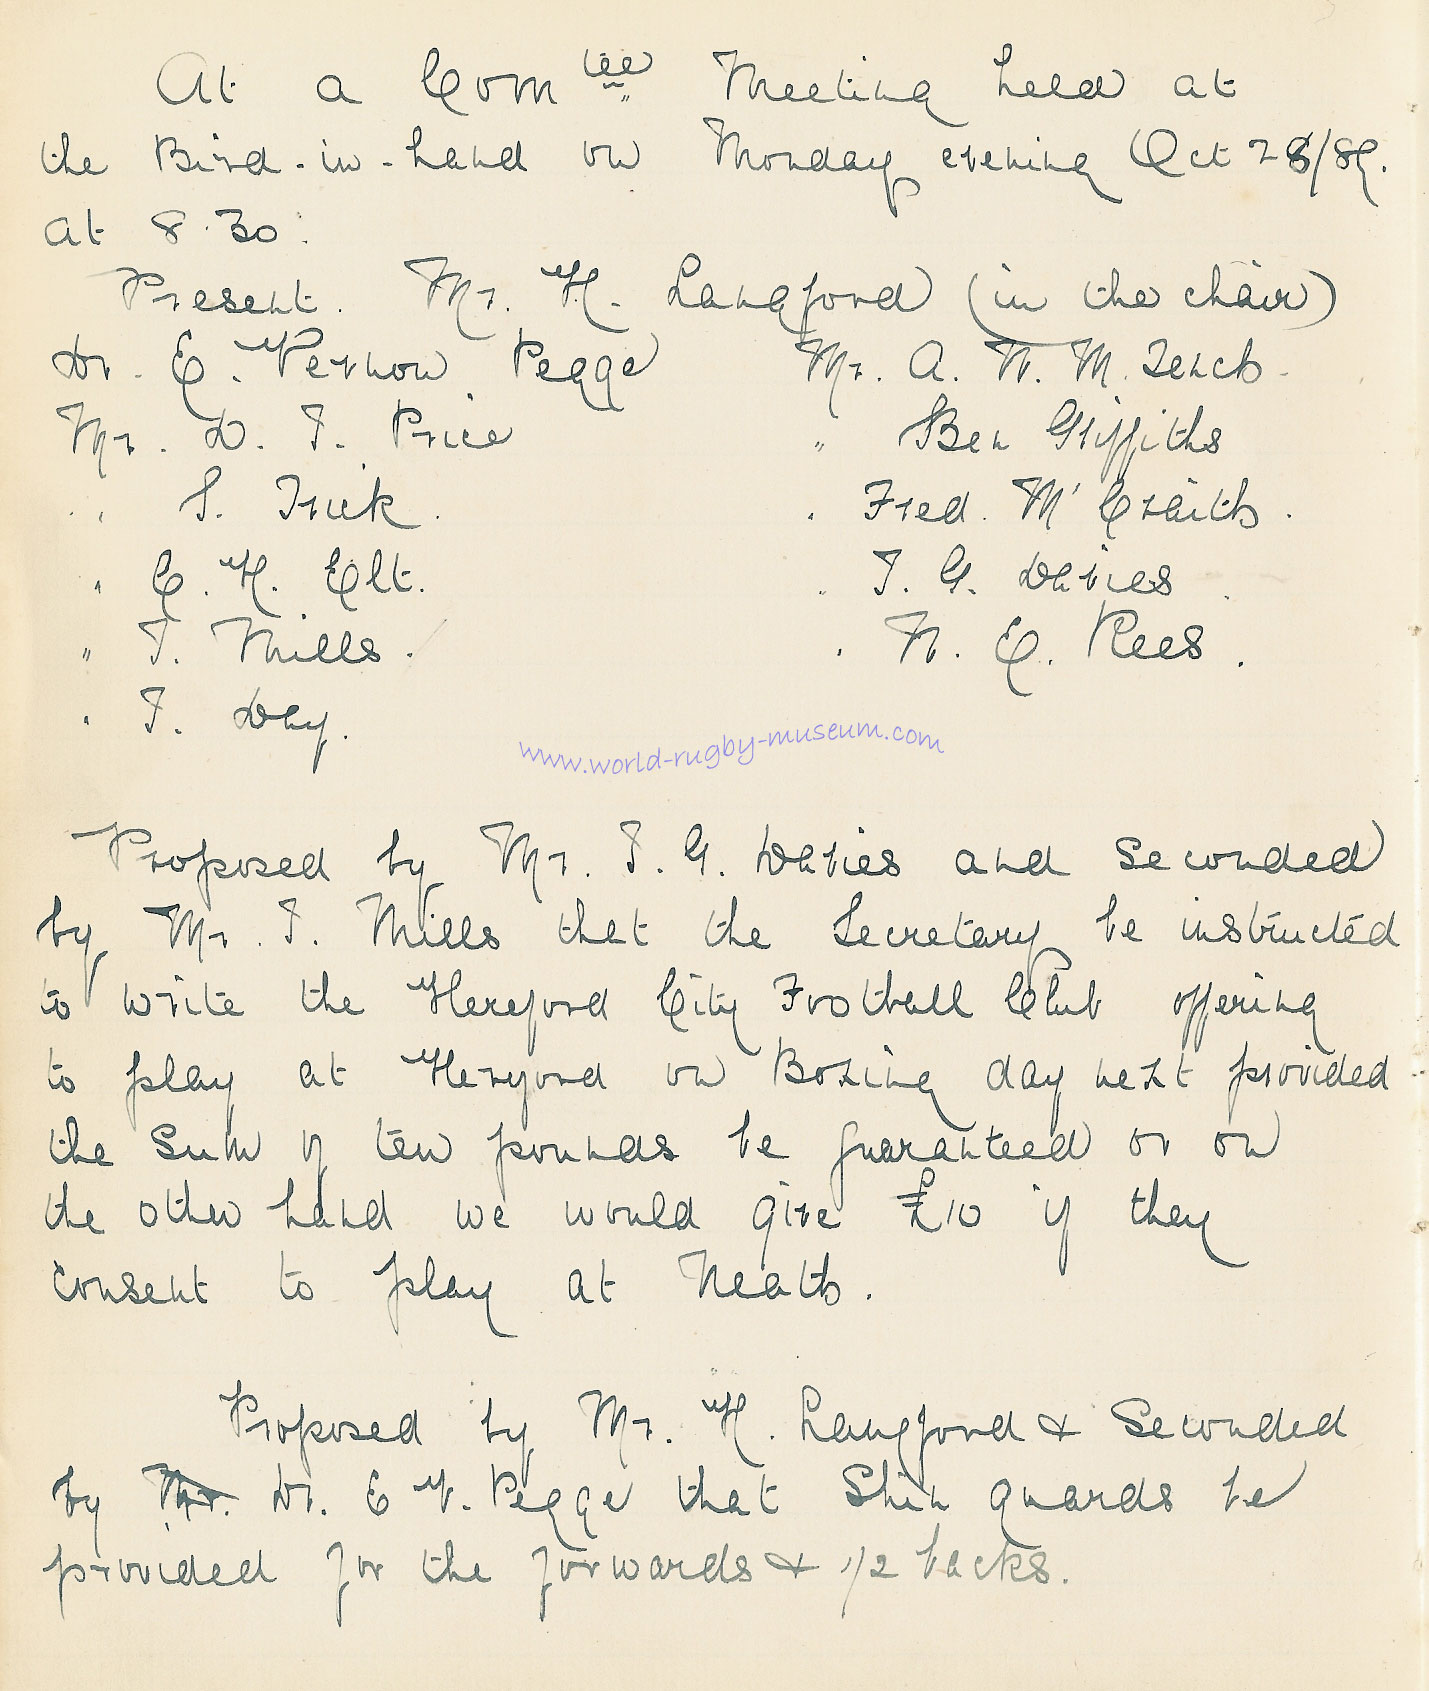 At a Com tee Meeting held at
the Bird-in-hand on Monday evening Oct 28/89.
at 8.30.
Present. Mr. H. Langford (in the chair)
Dr. E. Vernon Pegge Mr. A. W. M. Tench
Mr. D. T. Price " Ben Griffiths
" S. Trick. " Fred. M'Craith.
" C. H. Elt. " T. G. Davies
" T. Mills. " W. E. Rees.
" T. Day.
www.world-rugby-museum.com
Proposed by Mr. T. G. Davies and Seconded
by Mr. T. Mills that the Secretary be instructed
to write the Hereford City Football Club offering
to play at Hereford on Boxing day next provided
the Sum of ten pounds be guaranteed or on
the other hand we would give £10 if they
consent to play at Neath.
Proposed by Mr. H. Langford & Seconded
by Mr. Dr. E V. Pegge that Shin guards be
provided for the forwards & 1/2 backs.